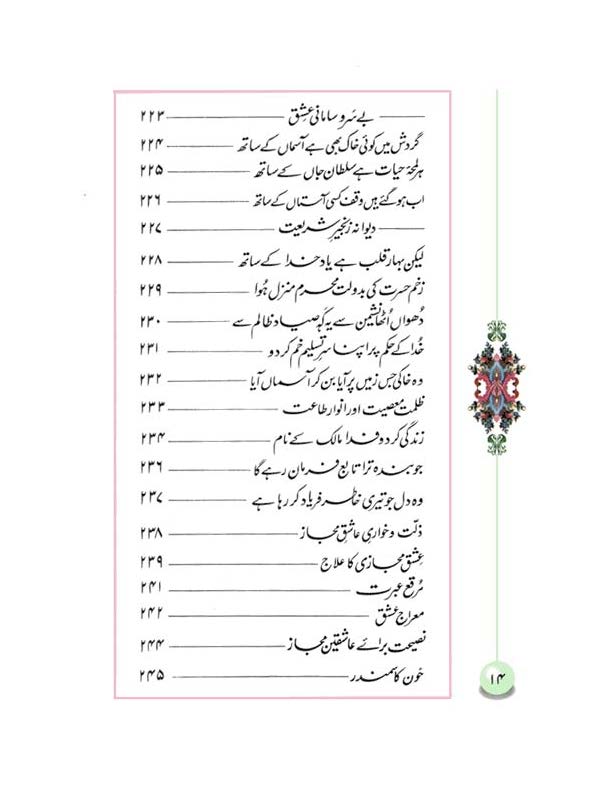 بے سَر و سامانیِ عشق ۲۲۳
گردش میں کوئی خاک بھی ہے آسماں کے ساتھ ۲۲۴
ہر لمحۂ حیات ہے سلطانِ جاں کے ساتھ ۲۲۵
اب ہو گئے ہیں وقف کسی آستاں کے ساتھ ۲۲۶
دیوانہ زنجیرِ شریعت ۲۲۷
لیکن بہارِ قلب ہے یادِ خدا کے ساتھ ۲۲۸
زخمِ حسرت کی بدولت محرمِ منزل ہُوا ۲۲۹
دُھواں اُٹھا نشیمن سے یہ کہہ صیادِ ظالم سے ۲۳۰
خُدا کے حکم پر اپنا سرِ تسلیم خم کر دو ۲۳۱
وہ خاکی جس زمیں پر آیا بن کر آسماں آیا ۲۳۲
ظلمتِ معصیت اور انوارِ طاعت ۲۳۳
زندگی کر دو فدا مالک کے نام ۲۳۴
جو بندہ ترا تابعِ فرمان رہے گا ۲۳۶
وہ دل جو تیری خاطر فریاد کر رہا ہے ۲۳۷
ذلّت و خواریِ عاشقِ مجاز ۲۳۸
عشقِ مجازی کا علاج ۲۳۹
مُرقعِ عبرت ۲۴۱
معراجِ عشق ۲۴۲
نصیحت برائے عاشقینِ مجاز ۲۴۴
خُون کا سمندر ۲۴۵
۱۴